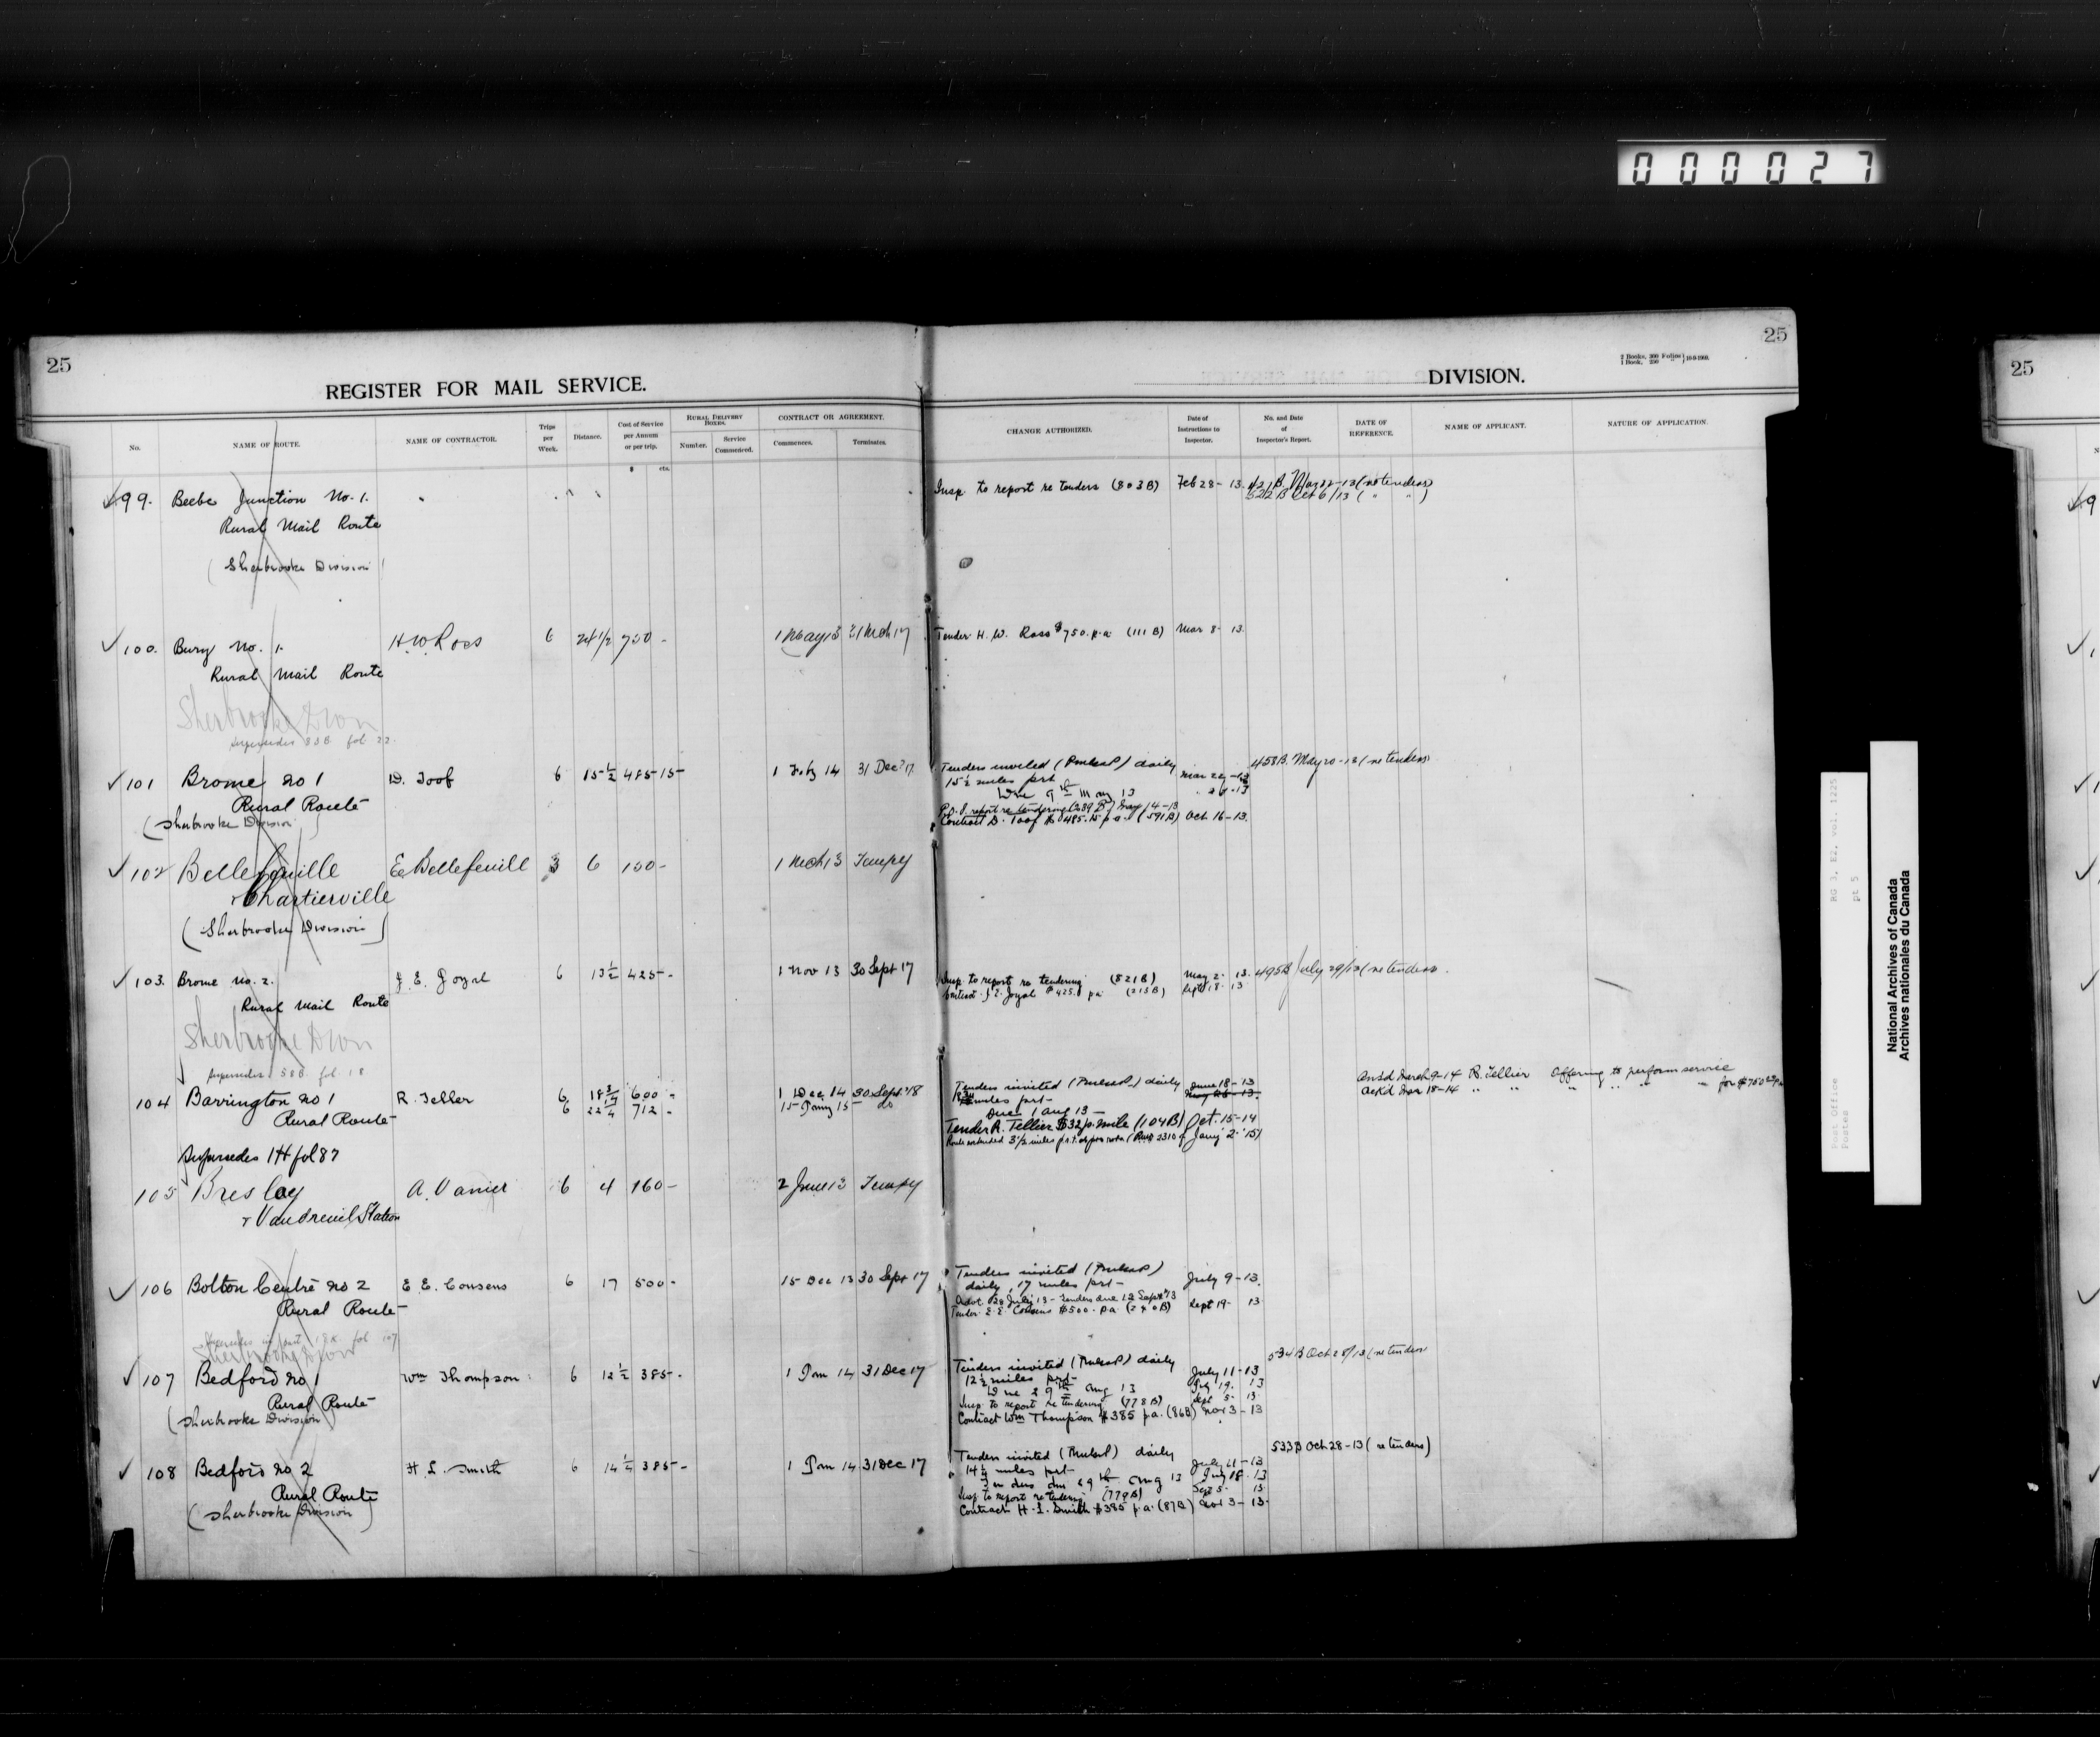 0 0 0 0 2 7
25
25
REGISTER FOR MAIL SERVICE.
DIVISION.
No.
NAME OF ROUTE.
NAME OF CONTRACTOR.
Trips per Week.
Distance.
Cost of Service per Annum or per trip.
$ cts.
RURAL DELIVERY BOXES.
Number.
Service Commenced.
CONTRACT OR AGREEMENT.
Commences.
Terminates.
CHANGE AUTHORIZED.
Date of Instructions to Inspector.
No. and Date of Inspector's Report.
DATE OF REFERENCE.
NAME OF APPLICANT.
NATURE OF APPLICATION.
99. Beebe Junction No. 1. Insp to report re tenders (803B) Feb 28-13. 421B May 22-13 (re tenders)
522B Oct 6/13 ( " " )
Rural Mail Route
(Sherbrooke Division)
100. Bury No. 1. H.W. Ross 6 24 1/2 750 - 1 May 13 31 Mch 17 Tender H. W. Ross $750. p.a (111 B) Mar 8- 13.
Rural Mail Route
Sherbrooke Divn
Supersedes 88B fol 22.
101 Brome No 1 D. Toof 6 15 1/2 485 15 1 Feby 14 31 Dec 17 Tenders invited daily
458B. May 20-13 (re tenders)
Rural Route 15 1/2 miles prt Mar 29-13
(Sherbrooke Division) Due 9th May 13
P.O.I. report re tendering (239 B) May 14-13
Contract D. Toof $485.15 p a (591B) Oct 16-13.
102 Bellefeuille E. Bellefeuill 3 6 100- 1 Mch 13 Tempy
& Chartierville
(Sherbrooke Division)
103. Brome No. 2. J. E. Joyal 6 13 1/2 425- 1 Nov 13 30 Sept 17 Insp. to report re tendering (821B) May 2- 13. 495B July 29/13 (re tenders)
Rural Mail Route Contract J. E. Joyal $425. pa (213B) Sept 18- 13.
Sherbrooke Divn
Supersedes 58B. fol 18
104 Barrington No 1 R. Teller 6 18 3/4 600 - 1 Dec 14 30 Sept 18 Tenders invited daily June 18-13 Ansd March 9-14 R. Tellier Offering to perform service
Rural Route 6 22 1/4 712 - 15 Jany 15 do miles prt- Ackd Mar 18-14 " " " " " for $750 pa
Due 1 Aug 13-
Tender R. Tellier $32 p. mile (104B) Oct. 15-14
Route extended 3 1/2 miles Jany 2-15)
Supersedes 1H fol 87
105 Breslay A. Vanier 6 4 160- 2 June 13 Tempy
& Vaudreuil Station
106 Bolton Centre No 2 E. E. Cousens 6 17 500- 15 Dec 13 30 Sept 17 Tenders invited
Rural Route daily, 17 miles prt- July 9-13.
Advt. 28 July 13- Tenders due 12 Sept 13
Tender E.E. Cousens $500- pa Sept 19- 13
Supersedes in part fol 107
Sherbrooke Divn
107 Bedford No 1 Wm Thompson 6 12 1/2 385- 1 Jan 14 31 Dec 17 Tenders invited daily July 11-13 534B Oct 28/13 (re tenders
Rural Route 12 1/2 miles prt- July 19. 13
(Sherbrooke Division) Due 29th Aug 13 Sept 5- 13
Insp to report re tendering (778B)
Contract Wm Thompson $385 p.a. (86B) Nov 3-13
108 Bedford No 2 H. L. Smith 6 14 1/4 385- 1 Jan 14 31 Dec 17 Tenders invited daily July 11-13 533B Oct 28-13 (re tenders)
Rural Route 14 1/4 miles prt- July 18. 13
(Sherbrooke Division) Tenders due 29th Aug 13 Sept 5- 13
Insp to report re tendering (779B)
Contract H. L. Smith $385 p.a. (87B) Nov 3-13.
RG 3, E2, vol. 1225
pt 5
Post Office
Postes
National Archives of Canada
Archives nationales du Canada
25